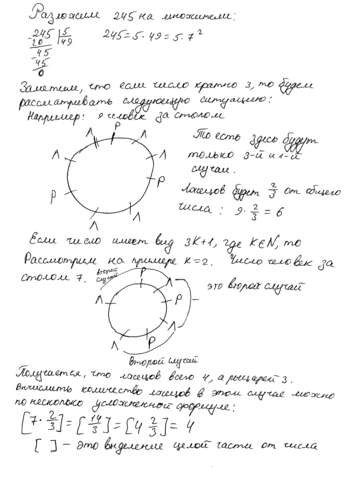 Разложим 245 на множители:
245 | 5
20 | 49
45
45
0
245 = 5 · 49 = 5 · 7²
Заметим, что если число кратно 3, то будем
рассматривать следующую ситуацию:
Например: 9 человек за столом
Р
Л
Л
Л
Л
Р
Р
Л
Л
То есть здесь будут
только 3-й и 1-й
случаи.
Лжецов будет 2/3 от общего
числа: 9 · 2/3 = 6
Если число имеет вид 3К+1, где К∈N, то
Рассмотрим на примере К=2. Число человек за
столом 7.
второй случай
Р
Л
Л
Р
Л
Р
Л
это второй случай
второй случай
Получается, что лжецов всего 4, а рыцарей 3.
Вычислить количество лжецов в этом случае можно
по несколько усложненной формуле:
[7 · 2/3] = [14/3] = [4 2/3] = 4
[ ] – это выделение целой части от числа